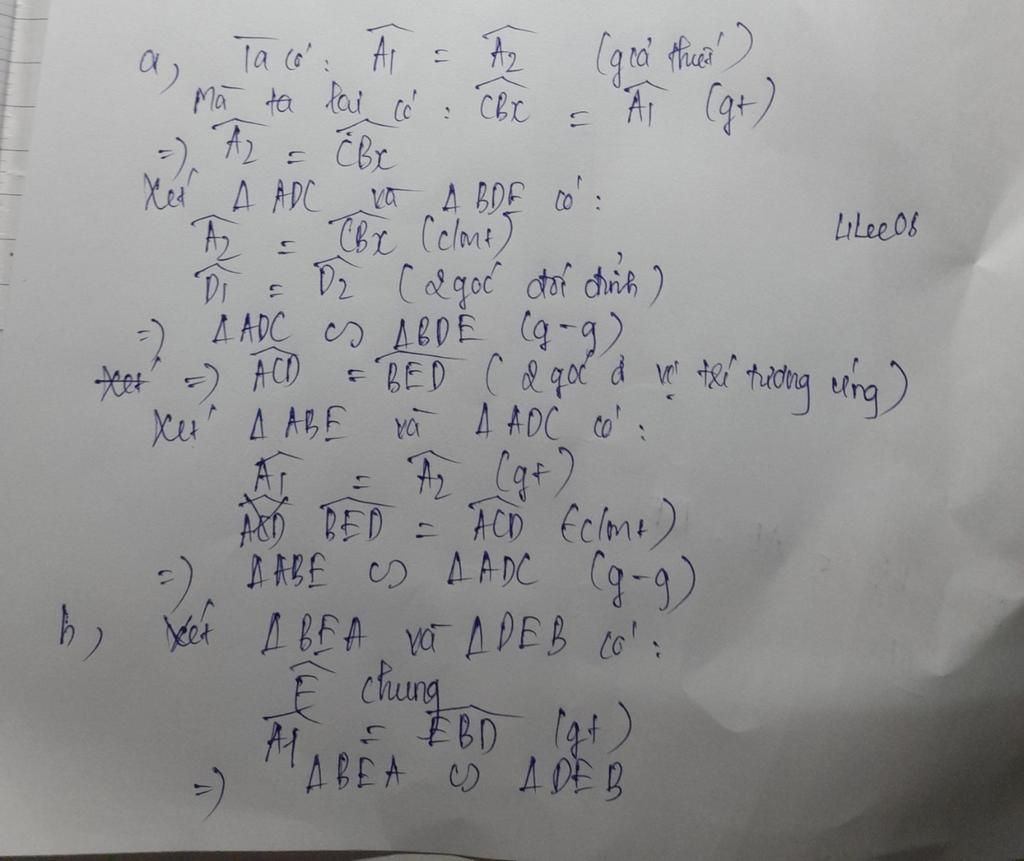 a, Ta có: A1 = A2 (giả thiết)
Mà ta lại có: CBx = A1 (gt)
=) A2 = CBx
Xét Δ ADC và Δ BDE có:
A2 = CBx (cmt)
LiLee08
D1 = D2 (2 góc đối đỉnh)
=) ΔADC ∽ ΔBDE (g-g)
Xét =) ACD = BED (2 góc ở vị trí tương ứng)
Xét Δ ABE và Δ ADC có:
A1 = A2 (gt)
ACD BED = ACD (cmt)
=) ΔABE ∽ ΔADC (g-g)
b, Xét ΔBEA và ΔDEB có:
E chung
A1 = EBD (gt)
=) ΔBEA ∽ ΔDEB